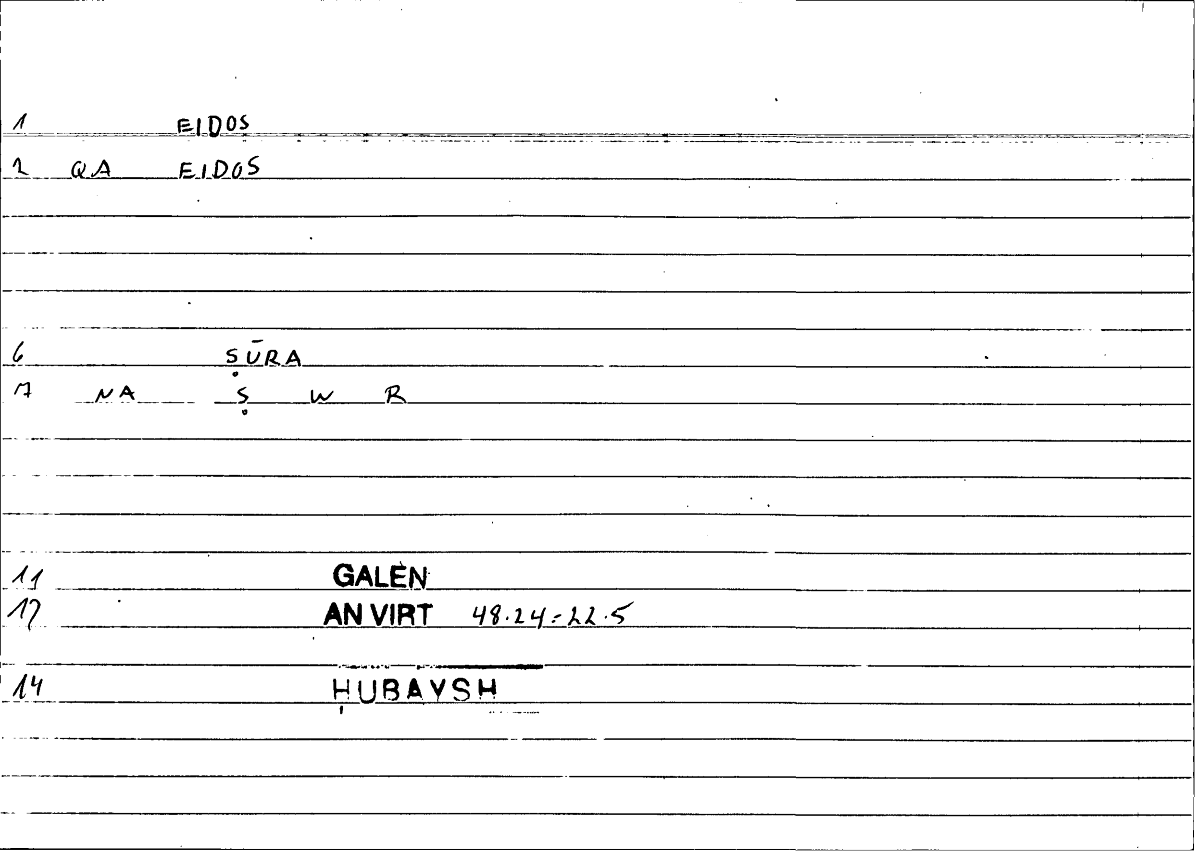 1 EIDOS
2 QA EIDOS
6 ṢŪRA
7 NA Ṣ W R
11 GALEN
12 AN VIRT 48.24=22.5
14 ḤUBAYSH